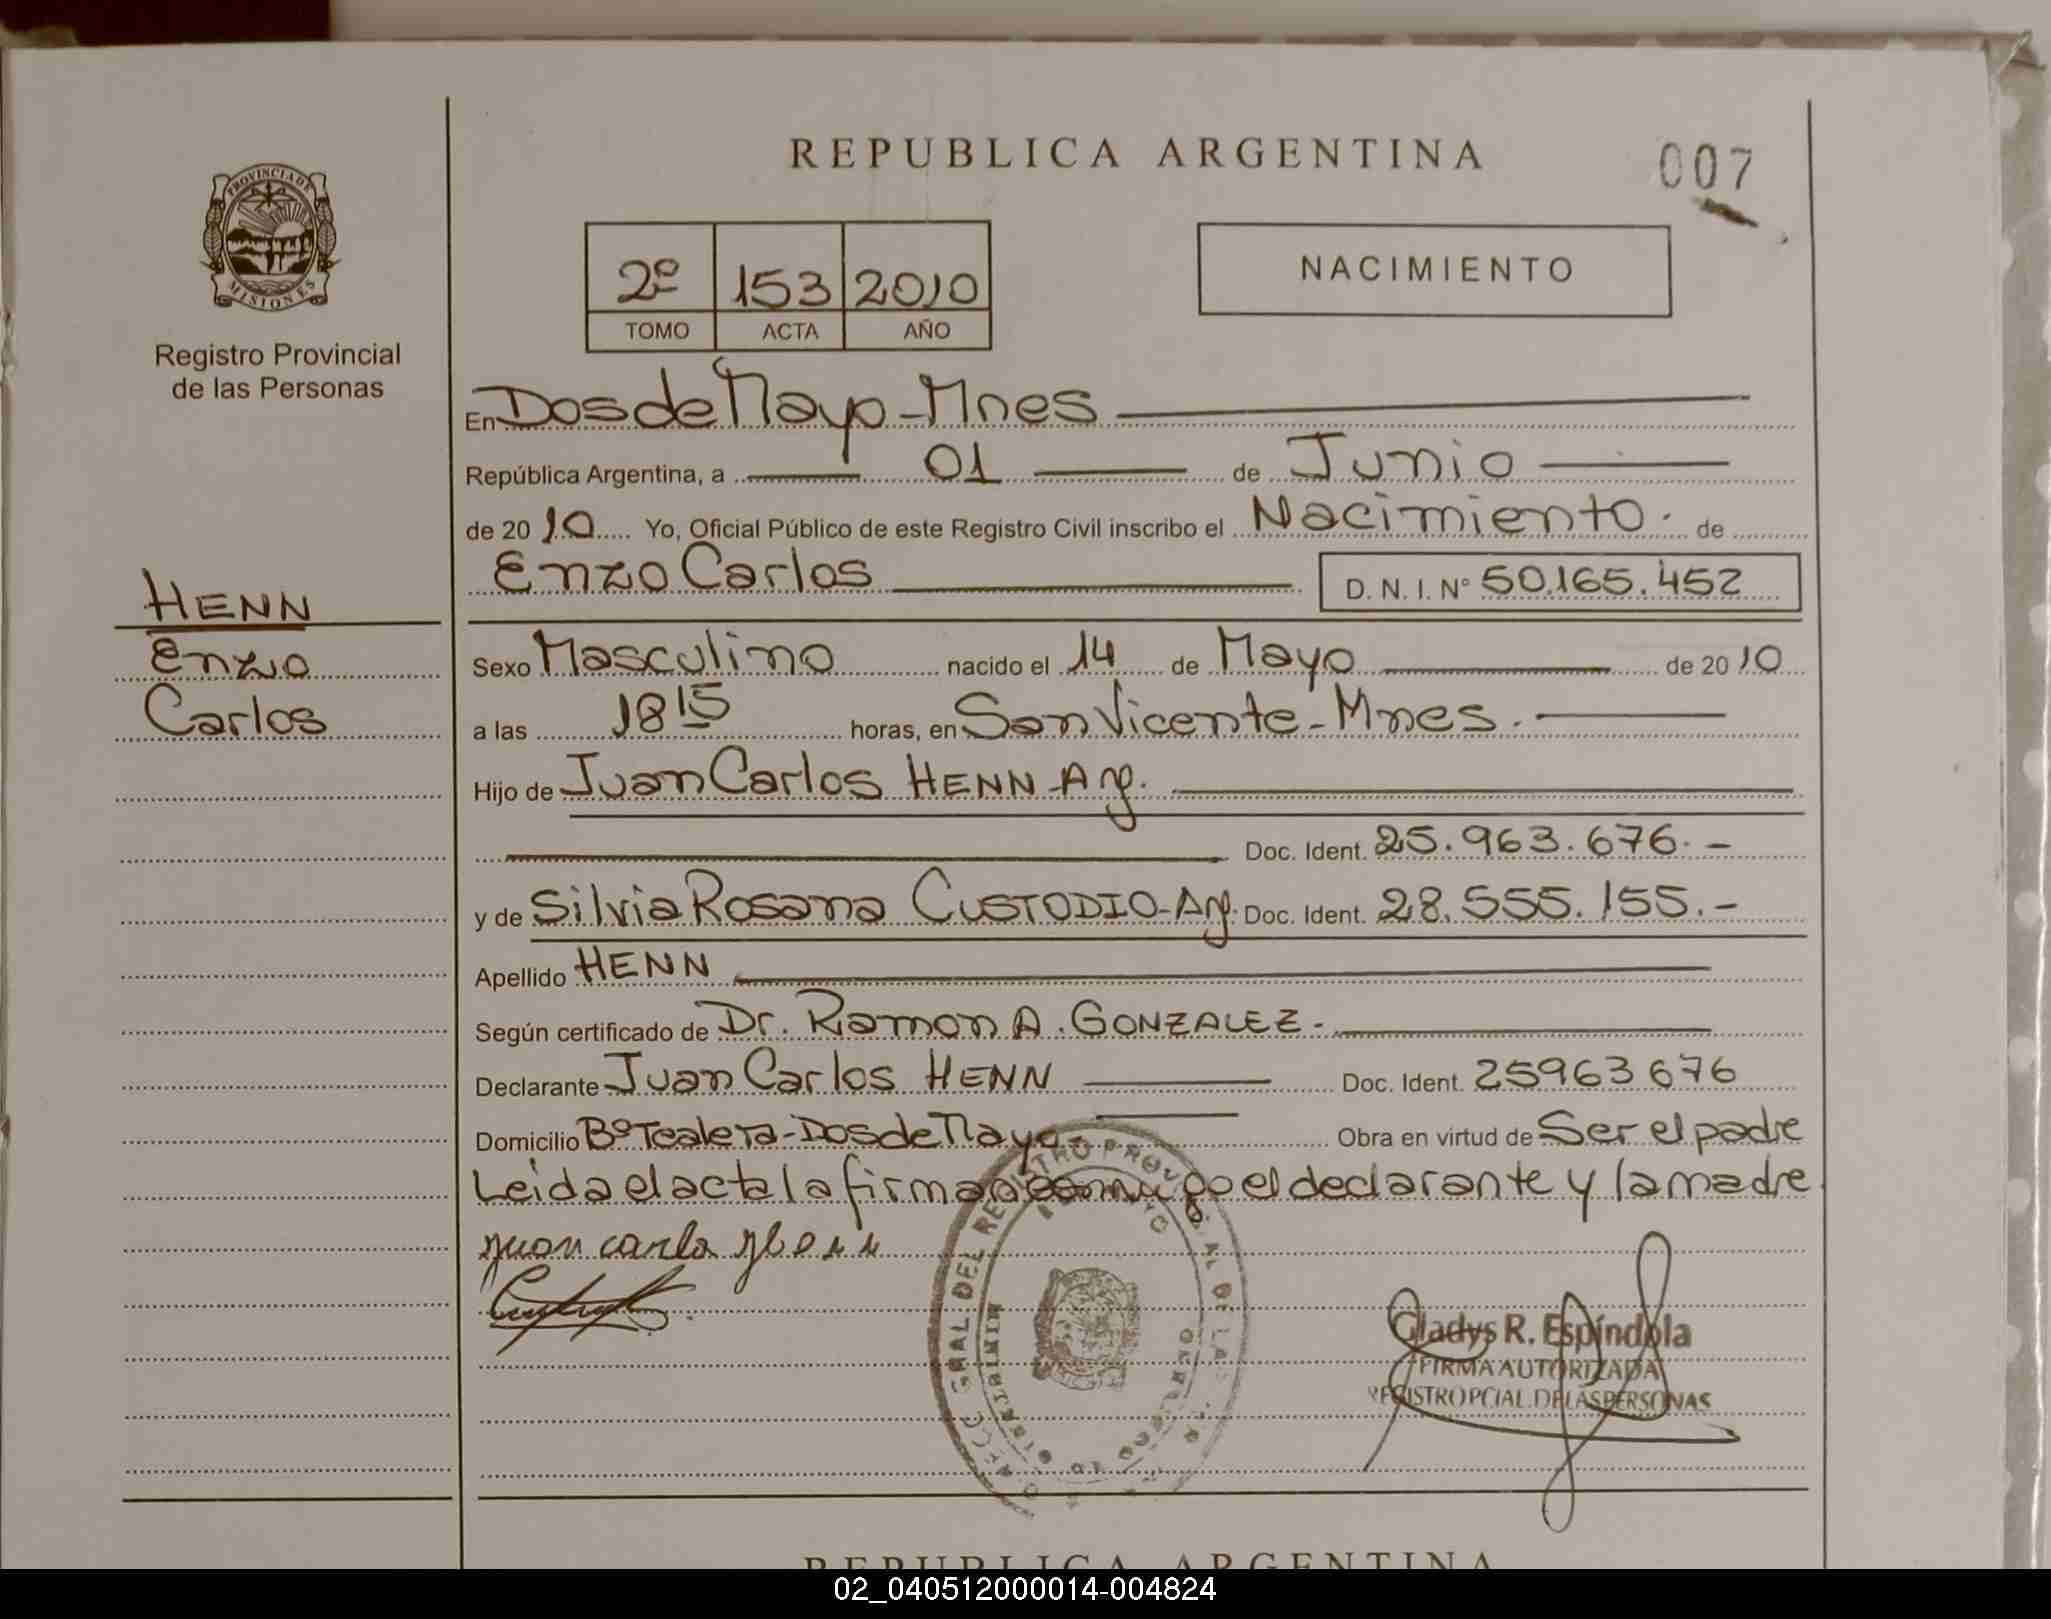 REPUBLICA ARGENTINA
007
PROVINCIA DE
MISIONES
Registro Provincial
de las Personas
2º 153 2010
TOMO ACTA AÑO
NACIMIENTO
En Dos de Mayo - Mnes
República Argentina, a 01 de Junio
de 2010 Yo, Oficial Público de este Registro Civil inscribo el Nacimiento. de
Enzo Carlos D. N. I. Nº 50.165.452
HENN
Enzo
Carlos
Sexo Masculino nacido el 14 de Mayo de 2010
a las 18 15 horas, en San Vicente - Mnes.
Hijo de Juan Carlos HENN - Arg.
Doc. Ident. 25.963.676.-
y de Silvia Rosana CUSTODIO - Arg. Doc. Ident. 28.555.155.-
Apellido HENN
Según certificado de Dr. Ramon A. GONZALEZ.-
Declarante Juan Carlos HENN Doc. Ident. 25963676
Domicilio Bº Tealera - Dos de Mayo - Obra en virtud de Ser el padre
Leida el acta la firman conmigo el declarante y la madre
Juan Carlo Henn
DEL REGISTRO PROVINCIAL DE LAS
Gladys R. Espíndola
FIRMA AUTORIZADA
REGISTRO PCIAL. DE LAS PERSONAS
REPUBLICA ARGENTINA
02_040512000014-004824